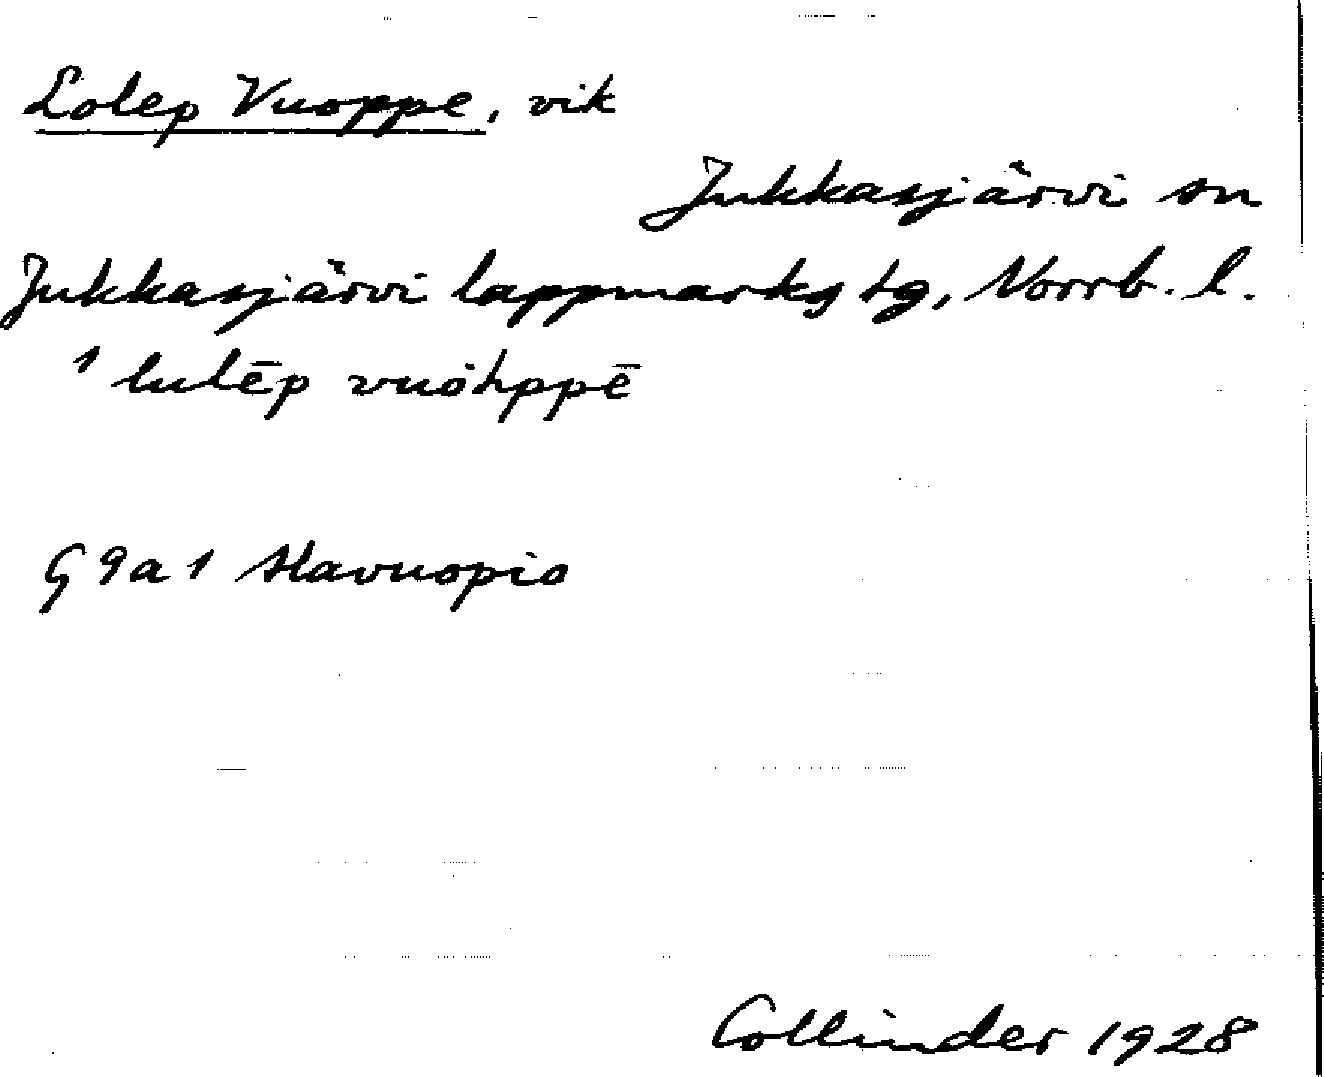 Lolep Vuoppe, vik
Jukkasjärvi sn
Jukkasjärvi lappmarks tg, Norrb. l.
1 lulēp vuòhppē
G9a1 Stavuopio
Collinder 1928